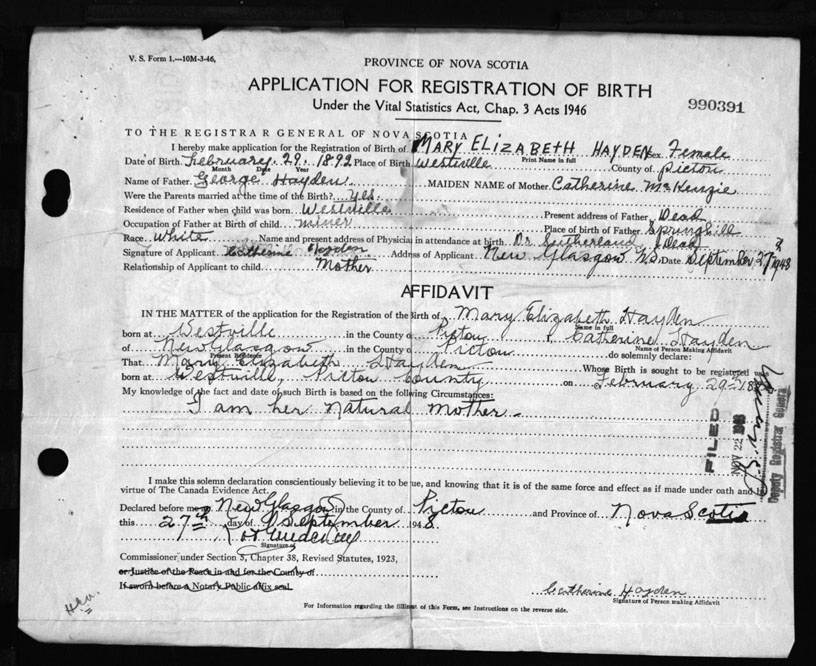 V. S. Form 1.—10M-3-46.
PROVINCE OF NOVA SCOTIA
APPLICATION FOR REGISTRATION OF BIRTH
Under the Vital Statistics Act, Chap. 3 Acts 1946
990391
TO THE REGISTRAR GENERAL OF NOVA SCOTIA
I hereby make application for the Registration of Birth of MARY ELIZABETH HAYDEN Sex Female
Print Name in full
Date of Birth February 29. 1892 Place of Birth Westville County of Pictou
Month Date Year
Name of Father George Hayden MAIDEN NAME of Mother Catherine McKenzie
Were the Parents married at the time of the Birth? Yes.
Residence of Father when child was born Westville Present address of Father Dead
Occupation of Father at Birth of child miner Place of birth of Father Springhill
Race White Name and present address of Physician in attendance at birth Dr. Sutherland, Dead
Signature of Applicant Catherine Hayden Address of Applicant New Glasgow N.S. Date September 27 1948
Relationship of Applicant to child Mother
AFFIDAVIT
IN THE MATTER of the application for the Registration of the Birth of Mary Elizabeth Hayden
Name in full
born at Westville in the County of Pictou I, Catherine Hayden
Name of Person Making Affidavit
of New Glasgow in the County of Pictou do solemnly declare:
Present Residence
That Mary Elizabeth Hayden Whose Birth is sought to be registered was
born at Westville, Pictou County on February 29th
My knowledge of the fact and date of such Birth is based on the following Circumstances:
I am her Natural Mother
FILED
NOV 22 1948
Deputy Registrar General
I make this solemn declaration conscientiously believing it to be true, and knowing that it is of the same force and effect as if made under oath and by
virtue of The Canada Evidence Act.
Declared before me at New Glasgow in the County of Pictou and Province of Nova Scotia
this 27th day of September 1948
Signature
Commissioner under Section 5, Chapter 38, Revised Statutes, 1923,
or Justice of the Peace in and for the County of
If sworn before a Notary Public affix seal.
Catherine Hayden
Signature of Person making Affidavit
For Information regarding the filling out of this Form, see Instructions on the reverse side.